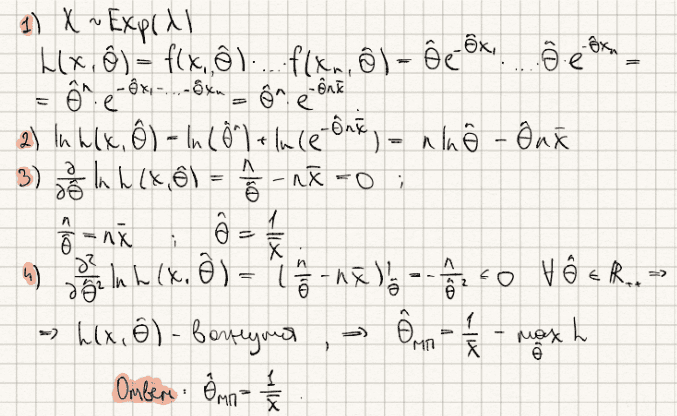 1) X ~ Exp(λ)
L(x, θ̂) = f(x₁, θ̂) · ... · f(xₙ, θ̂) = θ̂e^(-θ̂x₁) · ... · θ̂ · e^(-θ̂xₙ) =
= θ̂ⁿ · e^(-θ̂x₁ - ... - θ̂xₙ) = θ̂ⁿ · e^(-θ̂nx̄)
2) ln L(x, θ̂) = ln(θ̂ⁿ) + ln(e^(-θ̂nx̄)) = n ln θ̂ - θ̂nx̄
3) ∂/∂θ̂ ln L(x, θ̂) = n/θ̂ - nx̄ = 0 ;
n/θ̂ = nx̄ ; θ̂ = 1/x̄ .
4) ∂²/∂θ̂² ln L(x, θ̂) = (n/θ̂ - nx̄)'_θ̂ = -n/θ̂² ≤ 0 ∀ θ̂ ∈ ℝ₊₊ ⇒
⇒ L(x, θ̂) - вогнутая , ⇒ θ̂_МП = 1/x̄ - max_θ̂ L
Ответ: θ̂_МП = 1/x̄ .